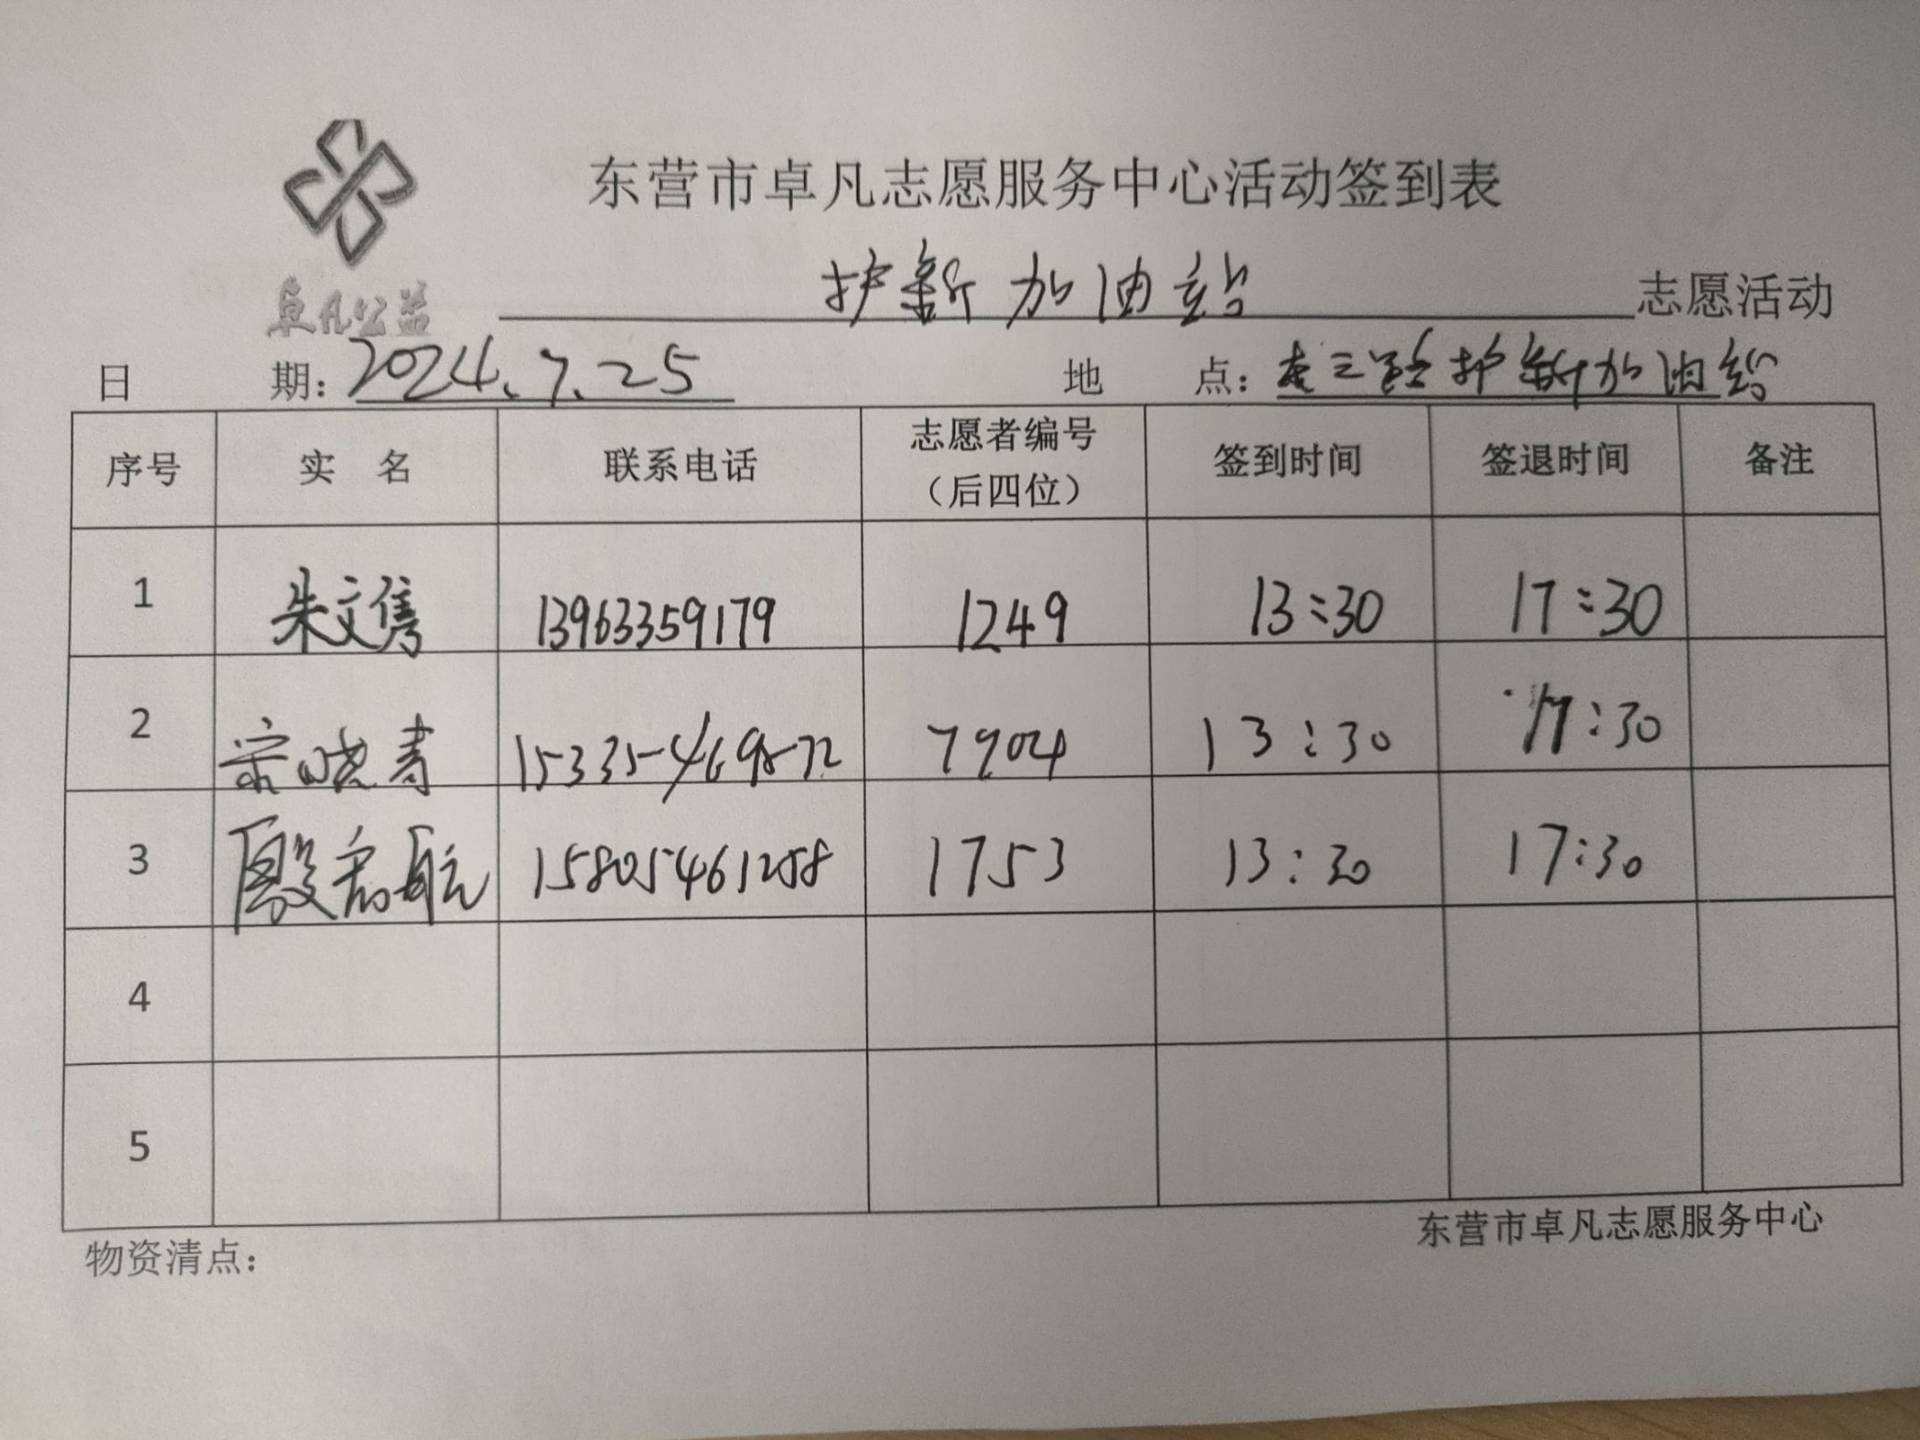 东营市卓凡志愿服务中心活动签到表
卓凡公益
护新加油站 志愿活动
日 期：2024.7.25 地 点：东三路护新加油站
序号 实 名 联系电话 志愿者编号（后四位） 签到时间 签退时间 备注
1 朱文隽 13963359179 1249 13:30 17:30
2 宋晓青 7904 13:30 17:30
3 殷宏航 15805461258 1753 13:30 17:30
4
5
物资清点：
东营市卓凡志愿服务中心